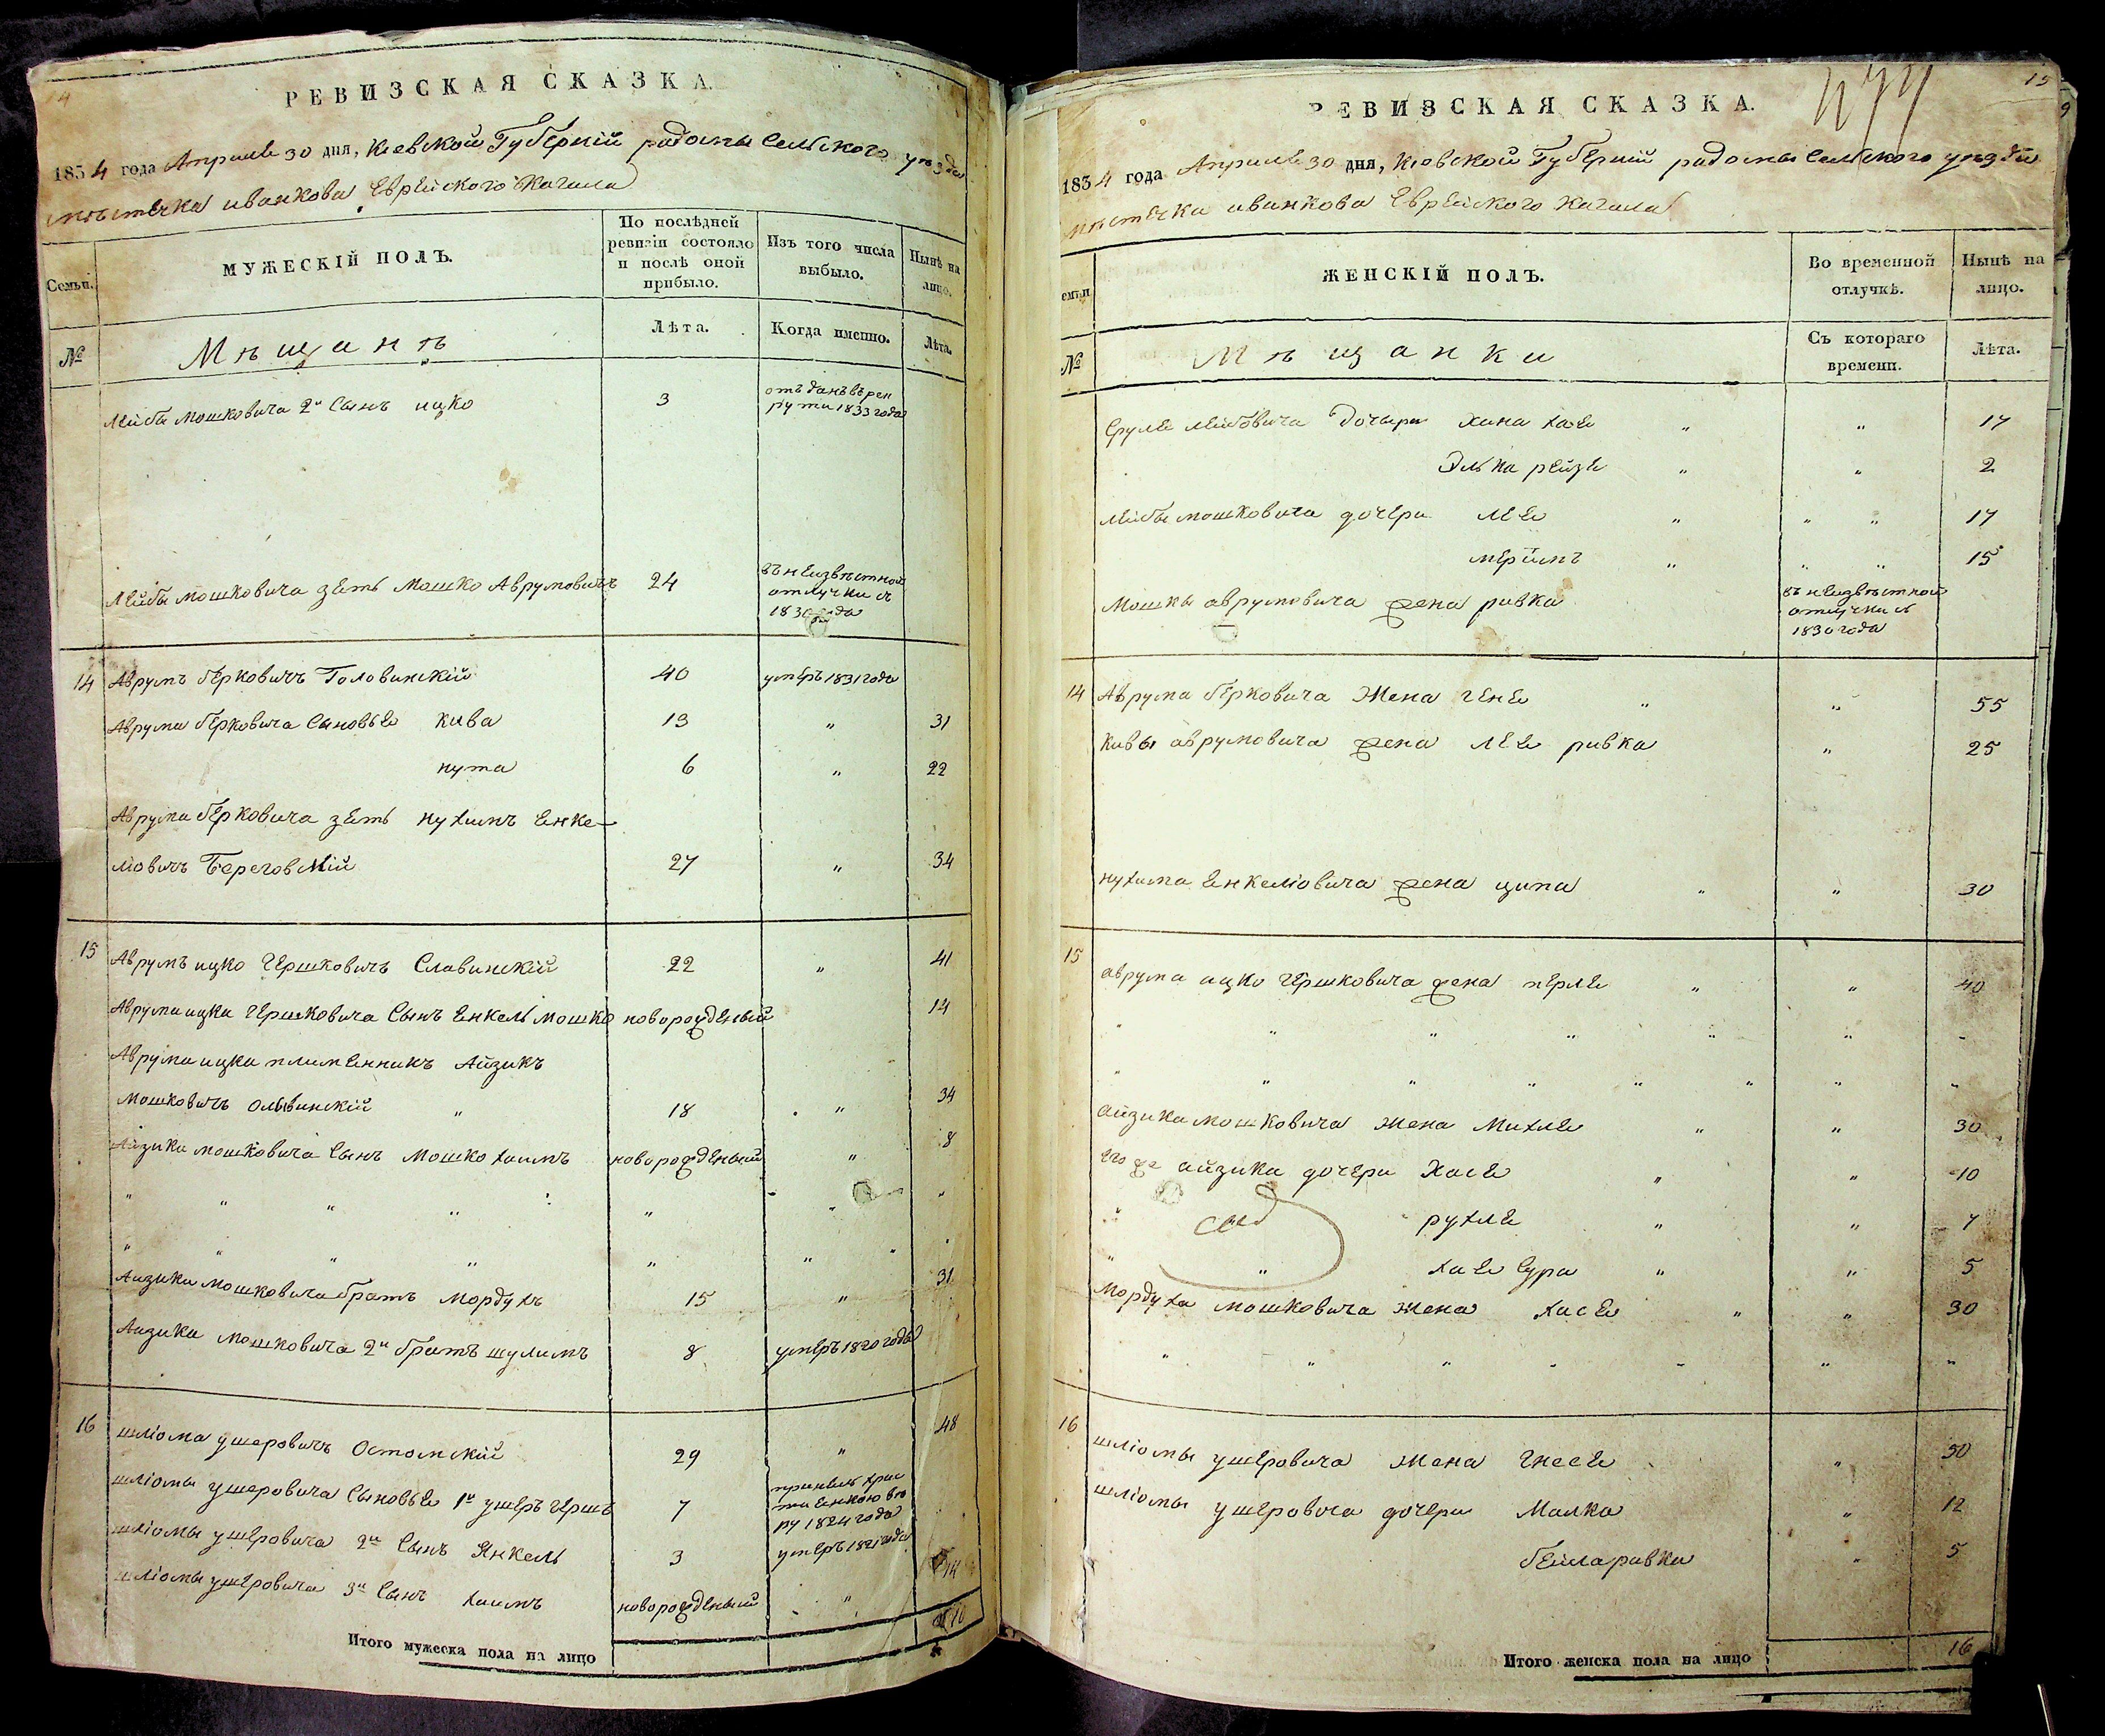 14
РЕВИЗСКАЯ СКАЗКА.
1834 года Апреля 30 дня, Кіевской Губерніи радомысельского уезда
мѣстечка иванкова Еврейского Кагала
Семьи.
МУЖЕСКІЙ ПОЛЪ.
По послѣдней ревизіи состояло и послѣ оной прибыло.
Изъ того числа выбыло.
Нынѣ на лицо.
№
Мѣщанѣ
Лѣта.
Когда именно.
Лѣта.
Лейбы Мошковича 2й Сынъ ицко 3 отъданъ въ рекруты 1833 года
Лейбы Мошковича зеть Мошко Аврумовичъ 24 въ неизвѣстной
отлучки съ
1830 года
14 Аврумъ берковичъ Головинскій 40 умеръ 1831 года
Аврума берковича Сыновье Кива 13 " 31
нута 6 " 22
Аврума берковича зеть нухимъ Енке-
ліовичъ Береговскій 27 " 34
15 Аврумъ ицко Гершковичъ Славинскій 22 " 41
Аврума ицка Гершковича Сынъ Енкель мошко новорожденый 14
Аврума ицка племенникъ Айзикъ
Мошковичъ Ольвинскій " 18 " 34
Айзика мошковича Сынъ Мошко хаимъ новорожденый " 8
Айзика Мошковича братъ Мордухъ 15 " 31
Айзика Мошковича 2й братъ шулимъ 8 умеръ 1820 года
16 шліома ушеровичъ Остомскій 29 " 48
шліомы ушеровича Сыновье 1й ушеръ герш 7 принелъ хрис
тиенкою ве
ру 1824 года
шліомы ушеровича 2й Сынъ Янкель 3 умеръ 1821 года
шліомы ушеровича 3й Сынъ хаимъ новорожденый " 14
Итого мужеска пола на лицо 10
15
РЕВИЗСКАЯ СКАЗКА.
1834 года Апреля 30 дня, Кіевской Губерніи радомысельского уезда
мѣстечка иванкова Еврейского Кагала
Семьи
ЖЕНСКІЙ ПОЛЪ.
Во временной отлучкѣ.
Нынѣ на лицо.
№
Мѣщанки
Съ котораго времени.
Лѣта.
Сруля лейбовича дочыри Хана хае " " 17
Элька рейзе " " 2
Лейбы мошковича дочери лее " " " 17
меріимъ " " " 15
Мошки аврумовича жена ривка въ неизвѣстной
отлучки съ
1830 года
14 Аврума берковича Жена гене " " 55
Кивы аврумовича жена лее ривка " 25
нухима Енкеліовича жена ципа " " 30
15 аврума ицко гершковича жена перле " " 40
айзика мошковича жена Михле " " 30
его же айзика дочери Хасе " " 10
" рухле " " 7
" " хае Сура " " 5
Мордуха мошковича жена хасе " " 30
16 шліомы ушеровича жена гнесе " 50
шліомы ушеровича дочери Малка " 12
бейларивка " 5
Итого женска пола на лицо 16